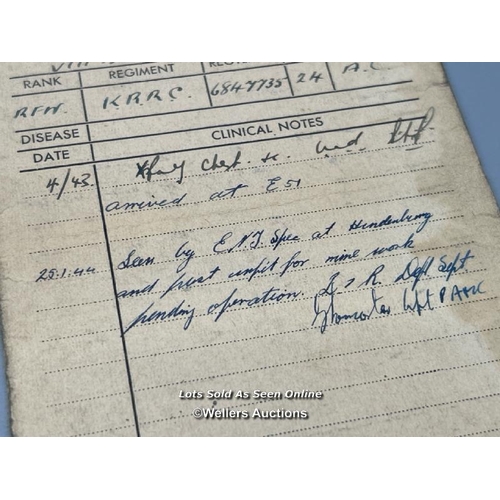 RANK REGIMENT
RFN. K.R.R.C. 6847735 24 A.C.
DISEASE CLINICAL NOTES
DATE
4/43. Xray Chest
arrived at E51
25.1.44 Seen by E.N.T. Spec at Hindenburg
and pres't unfit for mine work
pending operation. D & R. Deft Sept.
Capt RAMC
Lots Sold As Seen Online
©Wellers Auctions